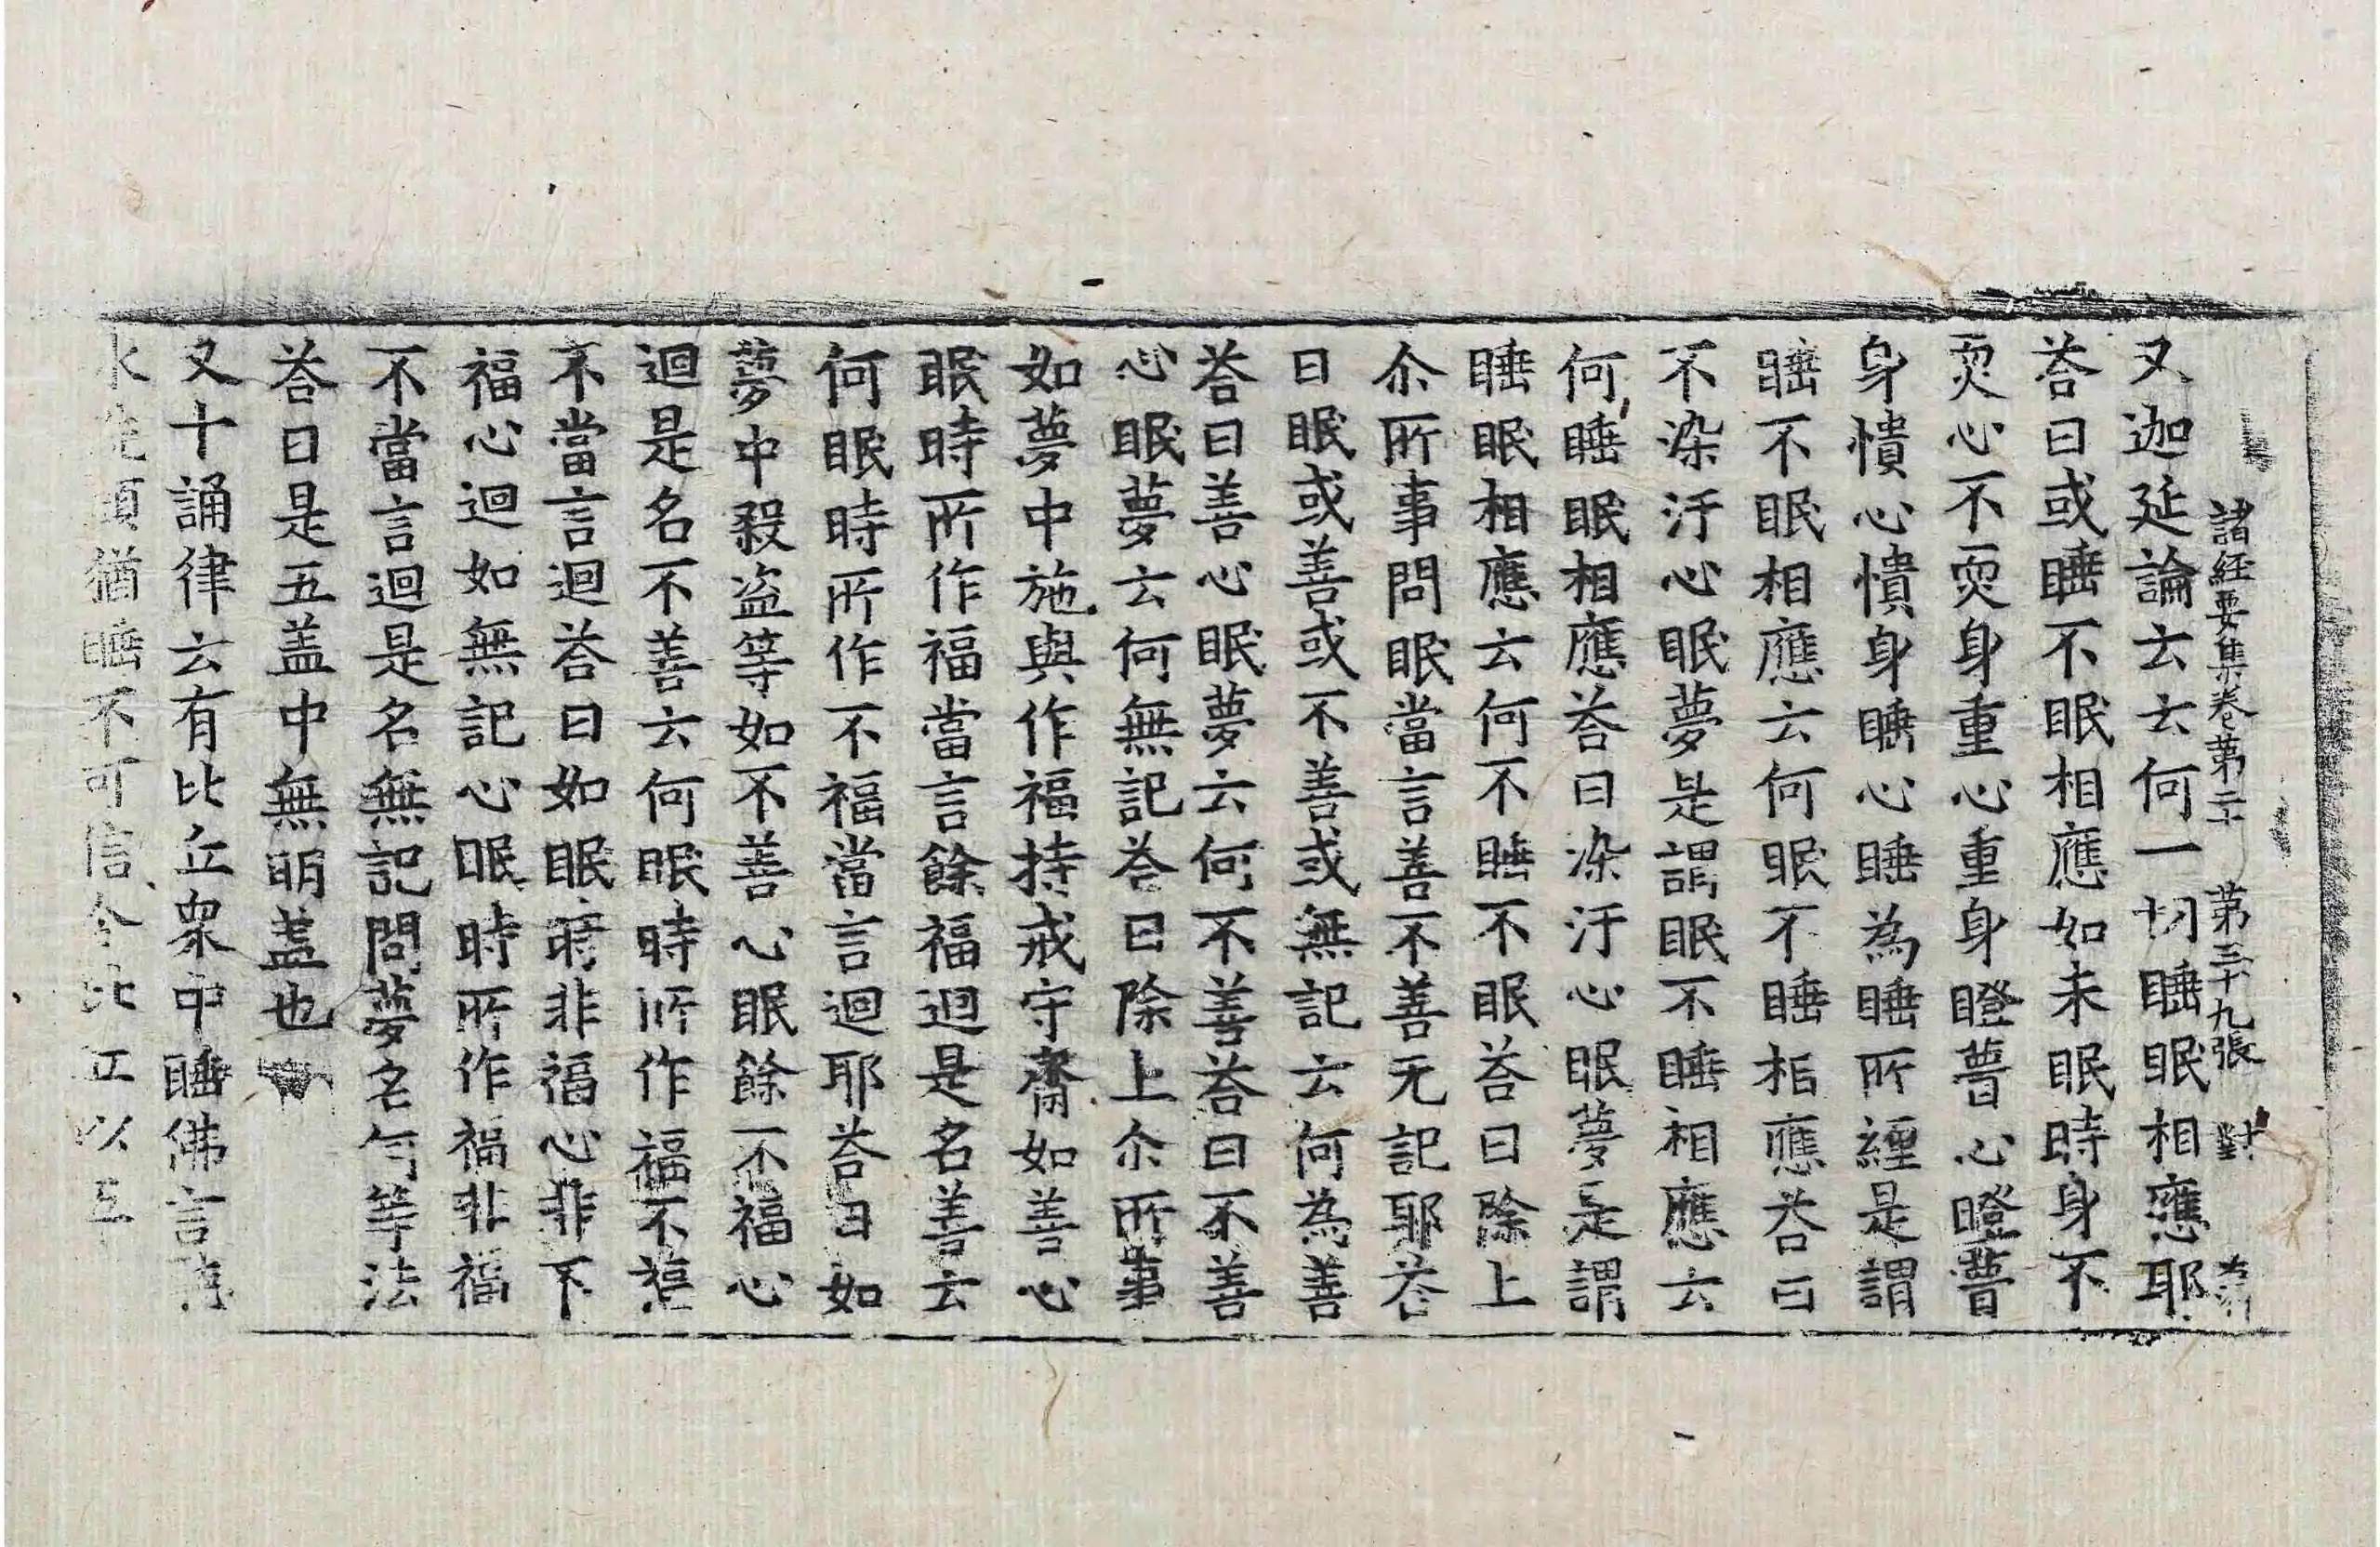 諸經要集卷第二十 第三十九張 對
又迦延論云云何一切睡眠相應耶
荅曰或睡不眠相應如未眠時身不
耎心不耎身重心重身瞪瞢心瞪瞢
身憒心憒身睡心睡為睡所纏是謂
睡不眠相應云何眠不睡相應荅曰
不染汙心眠夢是謂眠不睡相應云
何睡眠相應荅曰染汙心眠夢是謂
睡眠相應云何不睡不眠荅曰除上
尒所事問眠當言善不善无記耶荅
曰眠或善或不善或無記云何為善
荅曰善心眠夢云何不善荅曰不善
心眠夢云何無記荅曰除上尒所事
如夢中施與作福持戒守齋如善心
眠時所作福當言餘福迴是名善云
何眠時所作不福當言迴耶荅曰如
夢中殺盗等如不善心眠餘不福心
迴是名不善云何眠時所作福不福
不當言迴荅曰如眠時非福心非不
福心迴如無記心眠時所作福非福
不當言迴是名無記問夢名何等法
荅曰是五盖中無明盖也
又十誦律云有比丘衆中睡佛言聽
水洗頭猶睡不可信令比丘以